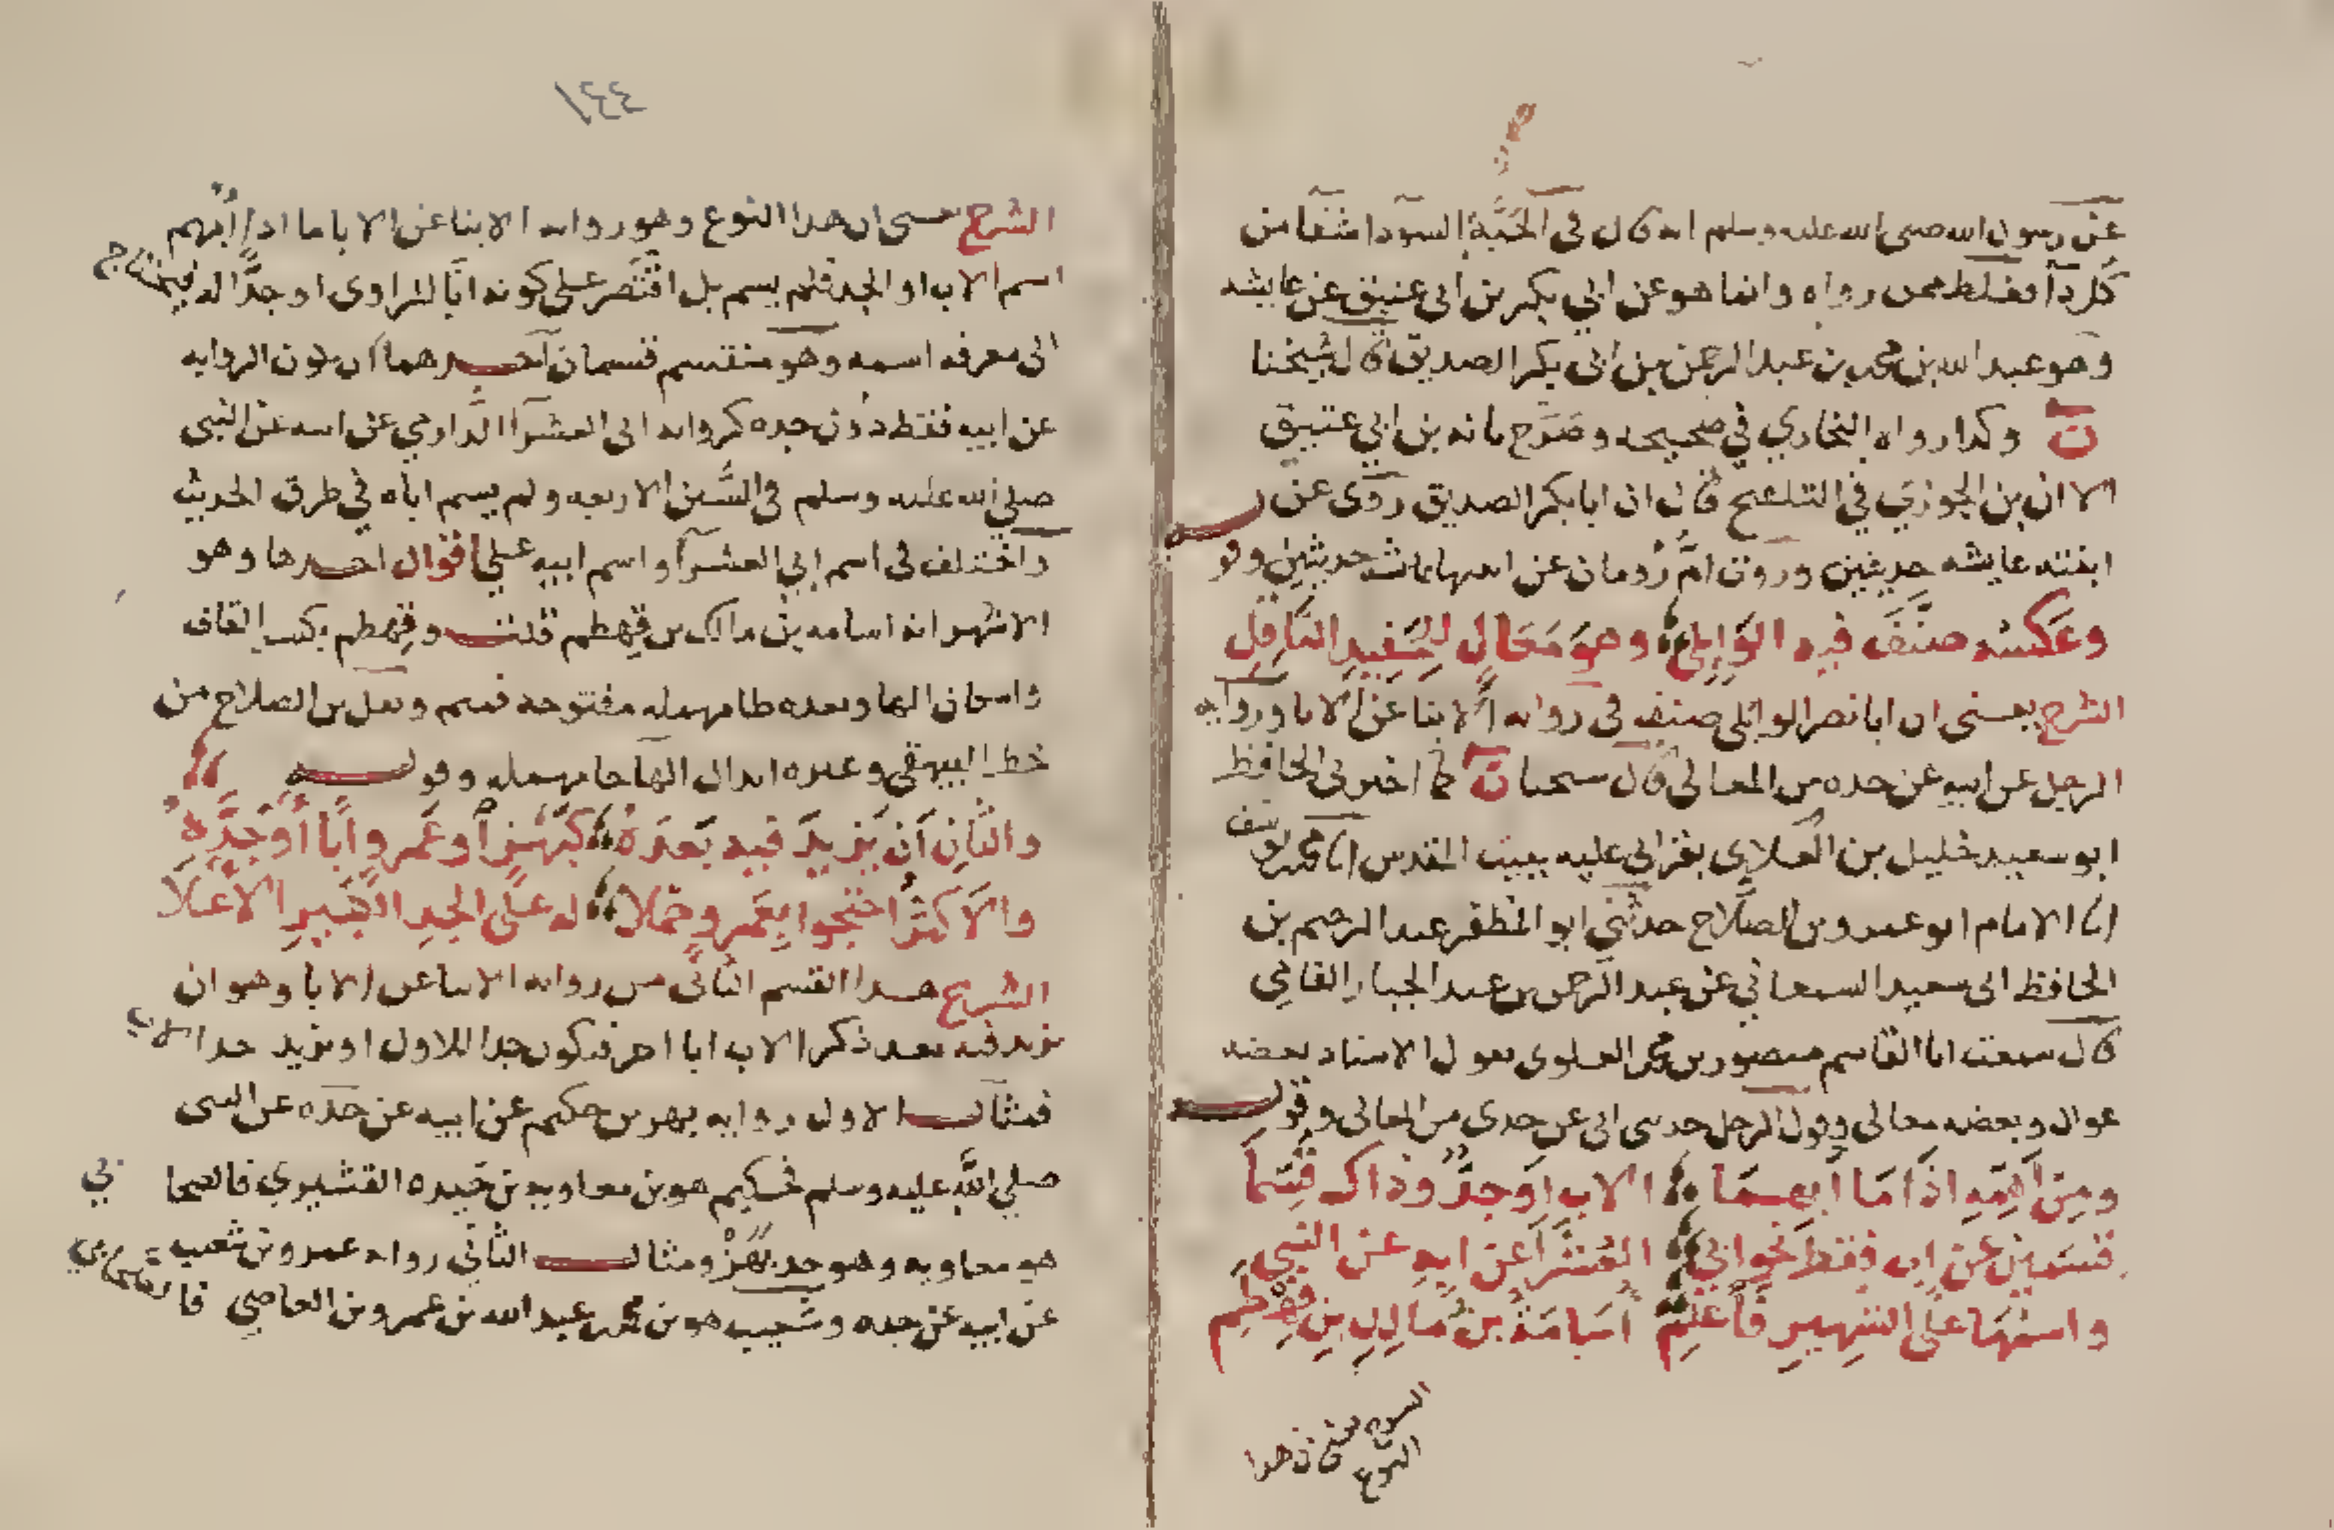 عن رسول الله صلى الله عليه وسلم انه قال في الحَبَّة السودا شفآ من
كل دآ فغلط ممن رواه وانما هو عن ابي بكر بن ابي عتيق عن عايشه
وهو عبد الله بن محمد بن عبد الرحمن بن ابي بكر الصديق قال شيخنا
ن وكذا رواه البخاري في صحيحه وصَرَّح بانه بن ابي عتيق
الا ان بن الجوزي في التلقيح قال ان ابا بكر الصديق روى عن
ابنته عايشه حديثين وروت امُّ رُومان عن ابنتها عايشه حديثين وقوله
وعَكسُه صنَّفَ فيه الوَايِلي وهوَ مَعَالٍ للحَفِيدِ النَّاقِلِ
الشرح يعني ان ابا نصر الوايلي صنف في روايه الابنا عن الابا وروايه
الرجل عن ابيه عن جده من المعالي قال شيخنا ن كما اخبرني الحافظ
ابو سعيد خليل بن العلاي بقراتي عليه ببيت المقدس انا محمد بن يوسف
انا الامام ابو عمرو بن الصلاح حدثني ابو المظفر عبد الرحيم بن
الحافظ ابي سعيد السمعاني عن عبد الرحمن بن عبد الجبار الفامي
قال سمعت ابا القاسم منصور بن محمد العلوي يقول الاسناد بعضه
عوال وبعضه معالي وقول الرجل حدثني ابي عن جدي من المعالي وقوله
ومِن اَهَمِّهِ اذَا مَا اَبهِمَا الاب اَوجَدٌّ وذاك قُسِّمَا
قسمَين عَن اب فقط نحو ابي العُشَرَا عَن ابِهِ عَن النبي
واسمُهَا عَلَى الشهِيرِ فَاعلَمِ اُسَامَةُ بن مَالِكِ بنِ قِهْطِمِ
النوع
في هذا
٢٤٤
الشرح يعني ان هدا النوع وهو روايه الابنا عن الابا ما اذا اُبهم
اسم الاب او الجد فلم يسم بل اقتصر على كونه ابًا للراوي او جدًّا له فيحتاج
الى معرفه اسمه وهو منقسم قسمان احدهما ان تكون الروايه
عن ابيه فقط دون جده كروايه ابي العشرآ الدَّارمي عن ابيه عن النبي
صلي الله عليه وسلم في السُّنن الاربعه ولم يسم اباه في طرق الحديث
واختلف في اسم ابي العشرآ واسم ابيه على اقوال احدها وهو
الاشهر انه اسامه بن مالك بن قِهطم قلت وقِهطم بكسر القاف
واسكان الها وبعده طا مهمله مفتوحه فميم ونقل بن الصلاح من
خط البيهقي وغيره ابدال الها حا مهمله وقوله
والثَّانِ اَن يَزِيدَ فيه بَعدَهُ كَبَهْزٍ اَو عَمرٍو اَبًا اَو جَدَّهُ
والاَكثرُ احتجوا بِعَمرٍو حَملا له عَلَى الجدِ الكَبيرِ الاَعلَا
الشرح هدا القسم الثاني من روايه الابنا عن الابا وهو ان
يزيد فيه بعد ذكر الاب ابا اخر فيكون جدا للاول او يزيد جدا للاب
فمثال الاول روايه بهز بن حكيم عن ابيه عن جده عن النبي
صلي الله عليه وسلم فحكيم هو بن معاويه بن حَيده القشيري فالصحابي
هو معاويه وهو جد بَهْز ومثال الثاني روايه عمرو بن شعيب
عن ابيه عن جده وشعيب هو بن محمد بن عبد الله بن عمرو بن العاصي فالصحابي